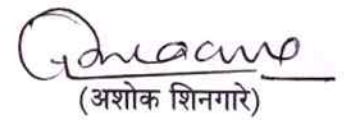 (अशोक शिनगारे)